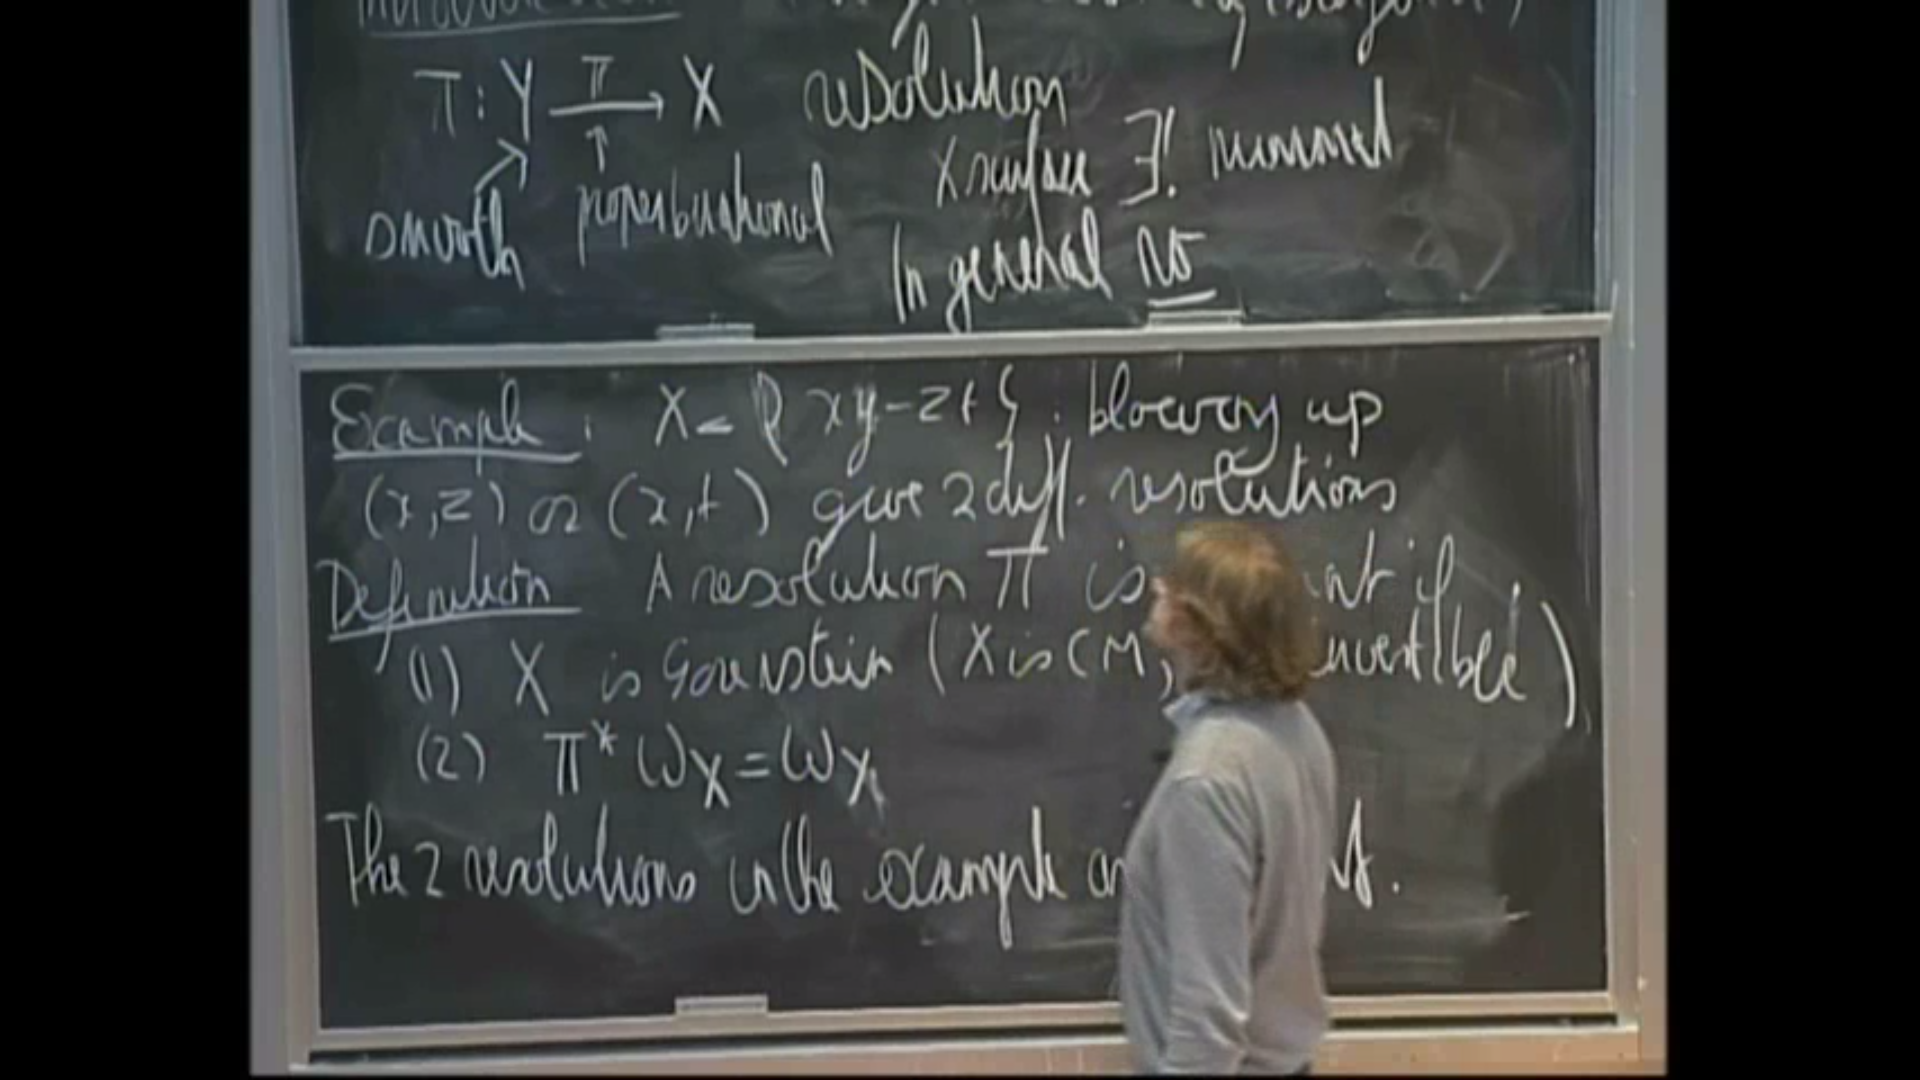 π : Y —π→ X resolution
X surface ∃! minimal
smooth proper birational
In general no
Example : X = { xy - zt } . blowing up
(x,z) or (x,t) give 2 diff. resolutions
Definition A resolution π is if
(1) X is Gorenstein ( X is CM, invertible )
(2) π* ω_X = ω_Y
The 2 resolutions in the example